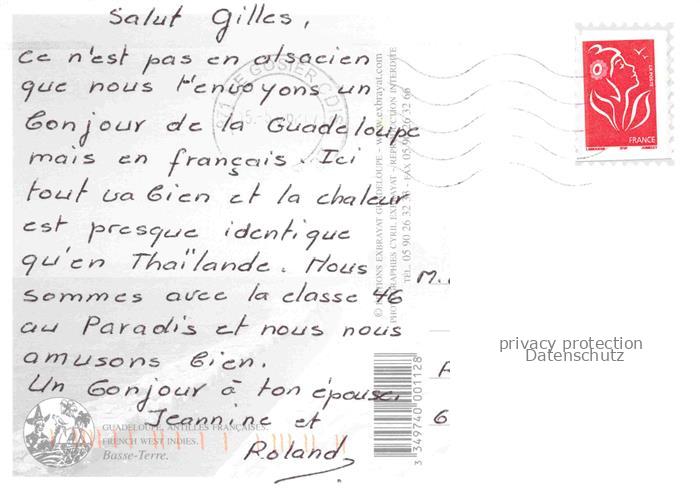 Salut Gilles,
ce n'est pas en alsacien
que nous t'envoyons un
bonjour de la Guadeloupe
mais en français. Ici
tout va bien et la chaleur
est presque identique
qu'en Thaïlande. Nous
sommes avec la classe 46
au Paradis et nous nous
amusons bien.
Un bonjour à ton épouse.
Jeannine et
Roland
GUADELOUPE, ANTILLES FRANÇAISES.
FRENCH WEST INDIES.
Basse-Terre.
LE GOSIER CDIS
© EDITIONS EXBRAYAT GUADELOUPE - www.exbrayat.com
PHOTOGRAPHIES CYRIL EXBRAYAT - REPRODUCTION INTERDITE
TÉL. 05 90 26 32 33 - FAX 05 90 26 32 66
3 349740 001128
LA POSTE
FRANCE
M.
6
privacy protection
Datenschutz